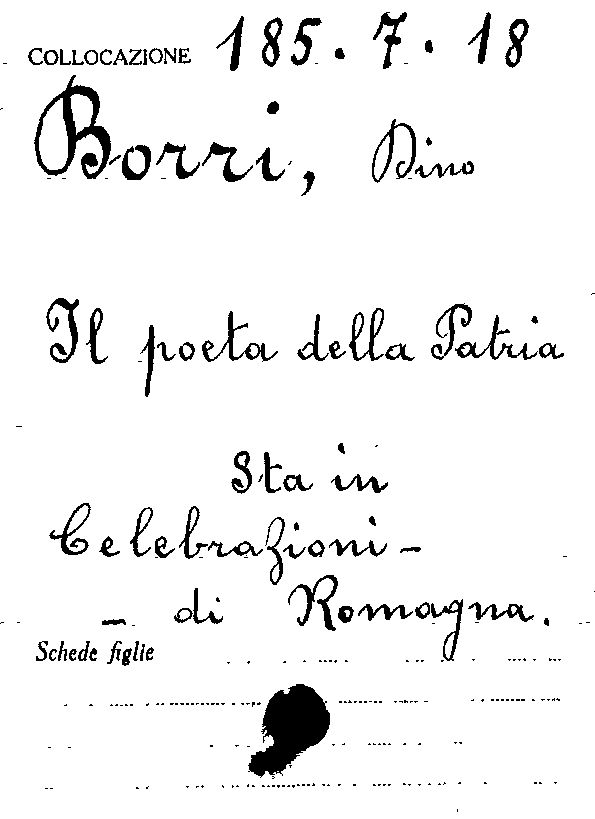 COLLOCAZIONE 185.7.18
Borri, Dino
Il poeta della Patria
Sta in
Celebrazioni -
- di Romagna.
Schede figlie